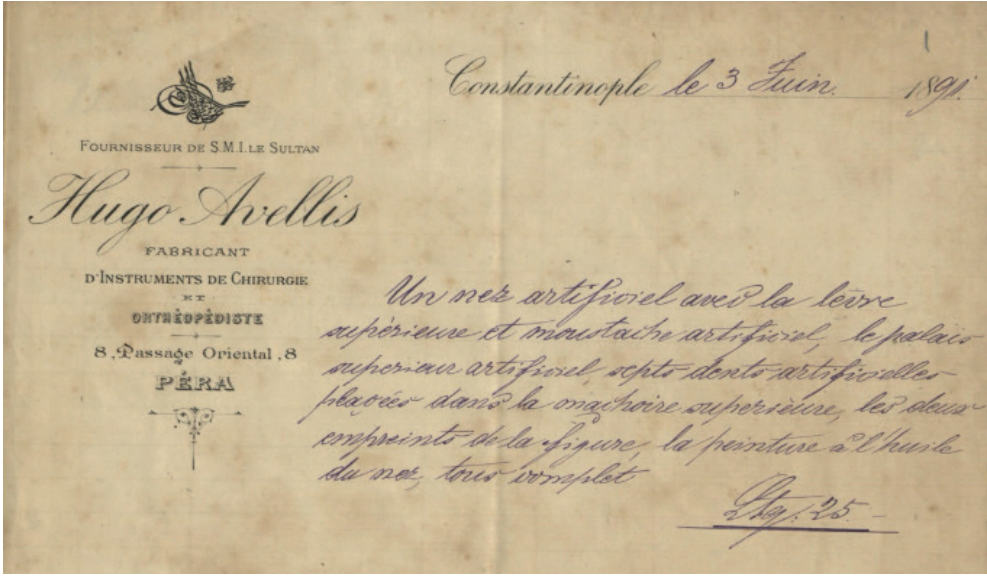 Constantinople le 3 Juin. 1891.
FOURNISSEUR DE S.M.I. LE SULTAN
Hugo Avellis
FABRICANT
D'INSTRUMENTS DE CHIRURGIE
ET
ORTHÉOPÉDISTE
8, Passage Oriental, 8
PÉRA
Un nez artificiel avec la lèvre
supérieure et moustache artificiel, le palais
superieur artificiel, septs dents artificielles
placées dans la machoire superieure, les deux
empreints de la figure, la peinture à l'huile
du nez, tous complet
Ltq. 25.-